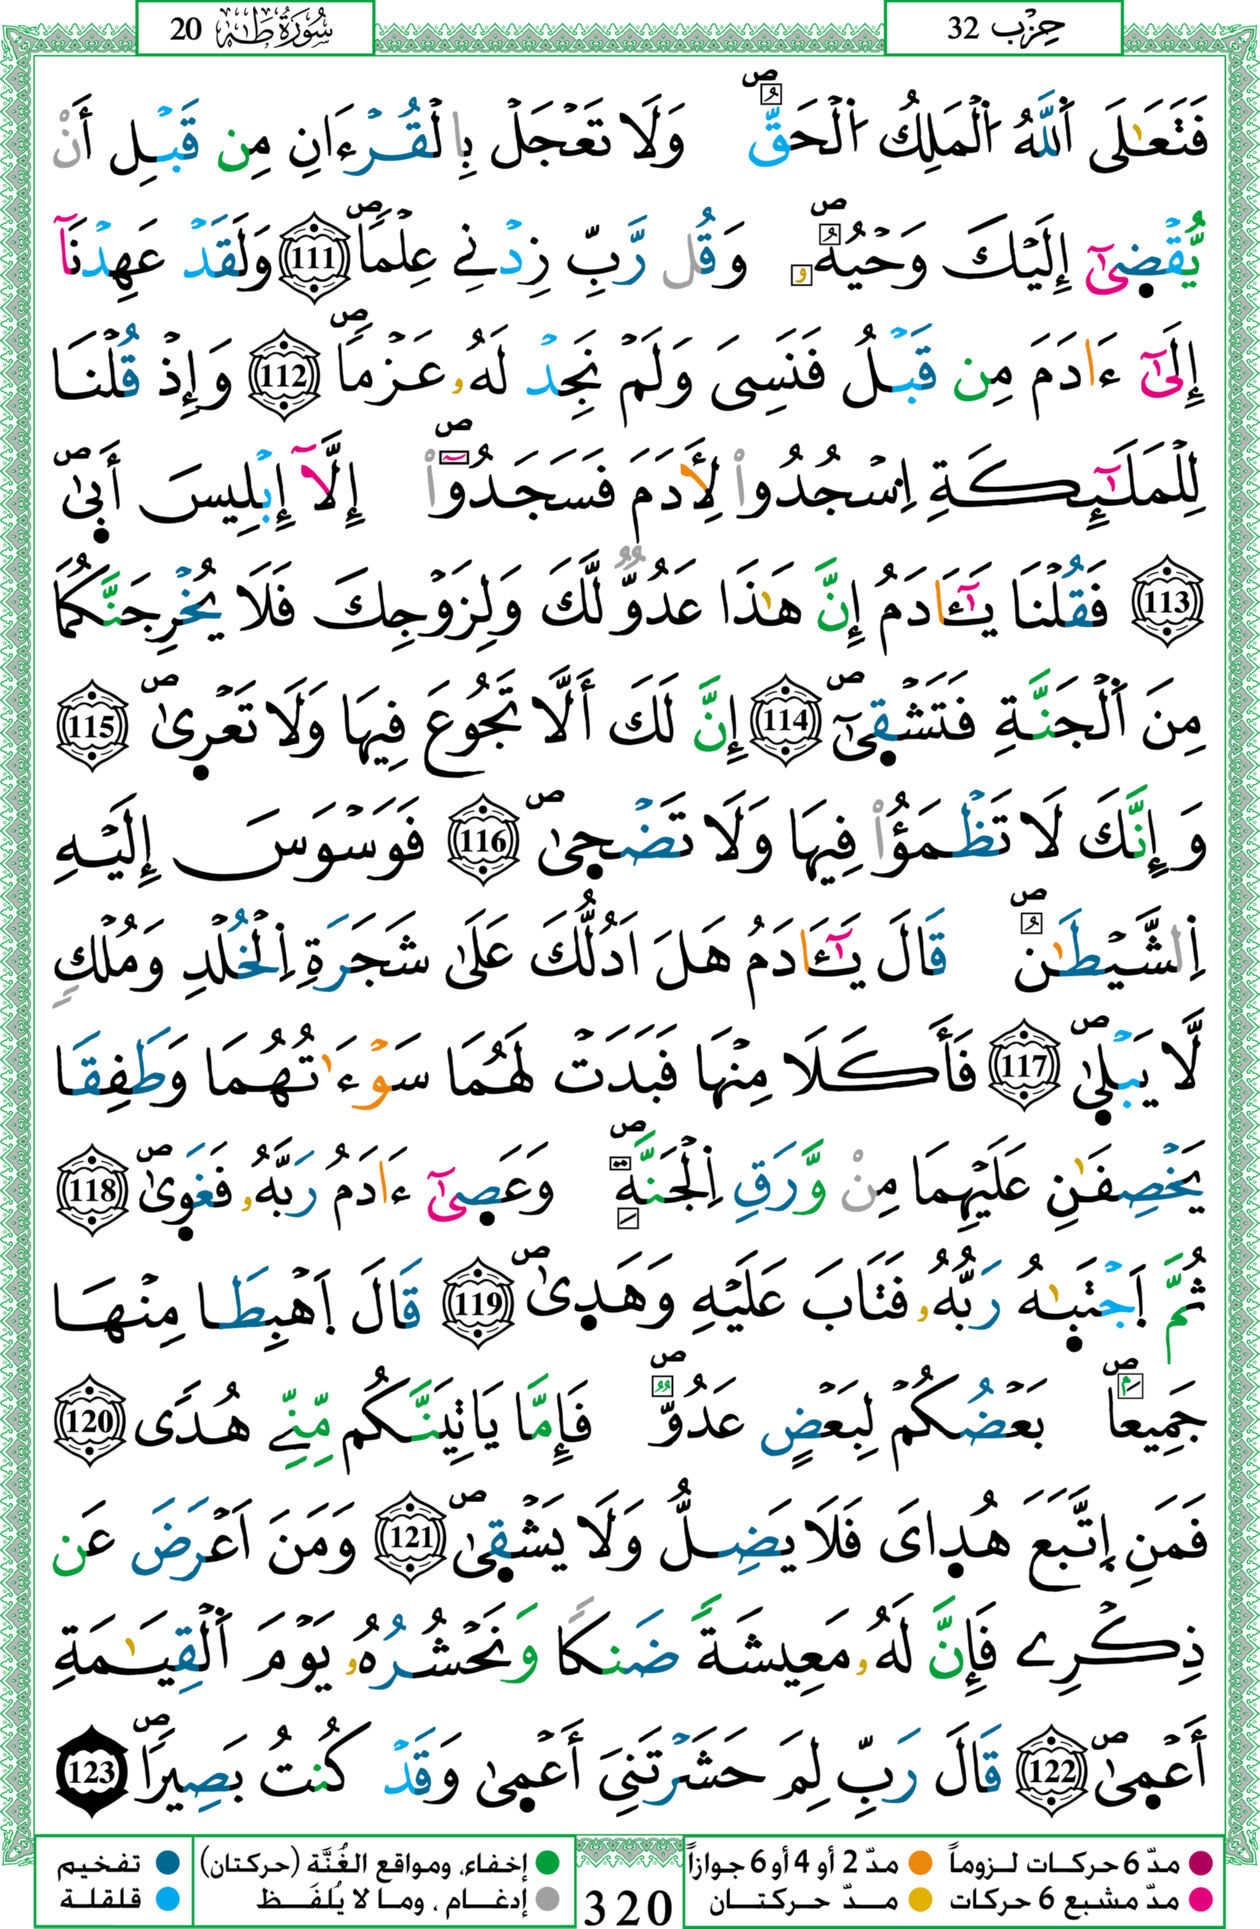 حِزْب 32
سُورَةُ طَهَ 20
فَتَعَٰلَى اَ۬للَّهُ اُ۬لْمَلِكُ اُ۬لْحَقُّۖ وَلَا تَعْجَلْ بِالْقُرْءَانِ مِن قَبْلِ أَنْ
يُّقْض۪ىٰٓ إِلَيْكَ وَحْيُهُۥۖ وَقُل رَّبِّ زِدْنِے عِلْماًۖ 111 وَلَقَدْ عَهِدْنَآ
إِلَىٰٓ ءَادَمَ مِن قَبْلُ فَنَسِىَ وَلَمْ نَجِدْ لَهُۥ عَزْماًۖ 112 وَإِذْ قُلْنَا
لِلْمَلَٰٓئِكَةِ اِ۟سْجُدُواْ لِأٓدَمَ فَسَجَدُوٓاْۖ إِلَّآ إِبْلِيسَ أَب۪ىٰۖ
113 فَقُلْنَا يَٰٓـَٔادَمُ إِنَّ هَٰذَا عَدُوّٞ لَّكَ وَلِزَوْجِكَ فَلَا يُخْرِجَنَّكُمَا
مِنَ اَ۬لْجَنَّةِ فَتَشْق۪ىٰٓۖ 114 إِنَّ لَكَ أَلَّا تَجُوعَ فِيهَا وَلَا تَعْر۪ىٰۖ 115
وَإِنَّكَ لَا تَظْمَؤُاْ فِيهَا وَلَا تَضْح۪ىٰۖ 116 فَوَسْوَسَ إِلَيْهِ
اِ۬لشَّيْطَٰنُۖ قَالَ يَٰٓـَٔادَمُ هَلَ اَدُلُّكَ عَلَىٰ شَجَرَةِ اِ۬لْخُلْدِ وَمُلْكٖ
لَّا يَبْل۪ىٰۖ 117 فَأَكَلَا مِنْهَا فَبَدَتْ لَهُمَا سَوْءَٰتُهُمَا وَطَفِقَا
يَخْصِفَٰنِ عَلَيْهِمَا مِنْ وَّرَقِ اِ۬لْجَنَّةِۖ وَعَص۪ىٰٓ ءَادَمُ رَبَّهُۥ فَغَو۪ىٰۖ 118
ثُمَّ اَ۪جْتَبٰ۪هُ رَبُّهُۥ فَتَابَ عَلَيْهِ وَهَد۪ىٰۖ 119 قَالَ اَ۪هْبِطَا مِنْهَا
جَمِيعاَۢۖ بَعْضُكُمْ لِبَعْضٍ عَدُوّٞۖ فَإِمَّا يَاتِيَنَّكُم مِّنِّے هُدًى 120
فَمَنِ اِ۪تَّبَعَ هُد۪اىَ فَلَا يَضِلُّ وَلَا يَشْق۪ىٰۖ 121 وَمَنَ اَعْرَضَ عَن
ذِكْرِے فَإِنَّ لَهُۥ مَعِيشَةً ضَنكاٗ وَنَحْشُرُهُۥ يَوْمَ اَ۬لْقِيَٰمَةِ
أَعْم۪ىٰۖ 122 قَالَ رَبِّ لِمَ حَشَرْتَنِىَ أَعْم۪ىٰ وَقَدْ كُنتُ بَصِيراًۖ 123
مدّ 6 حركات لزوماً مدّ 2 أو 4 أو 6 جوازاً
مدّ مشبع 6 حركات مدّ حركتان
320
إخفاء، ومواقع الغُنَّة (حركتان) تفخيم
إدغام ، وما لا يُلفَظ قلقلة